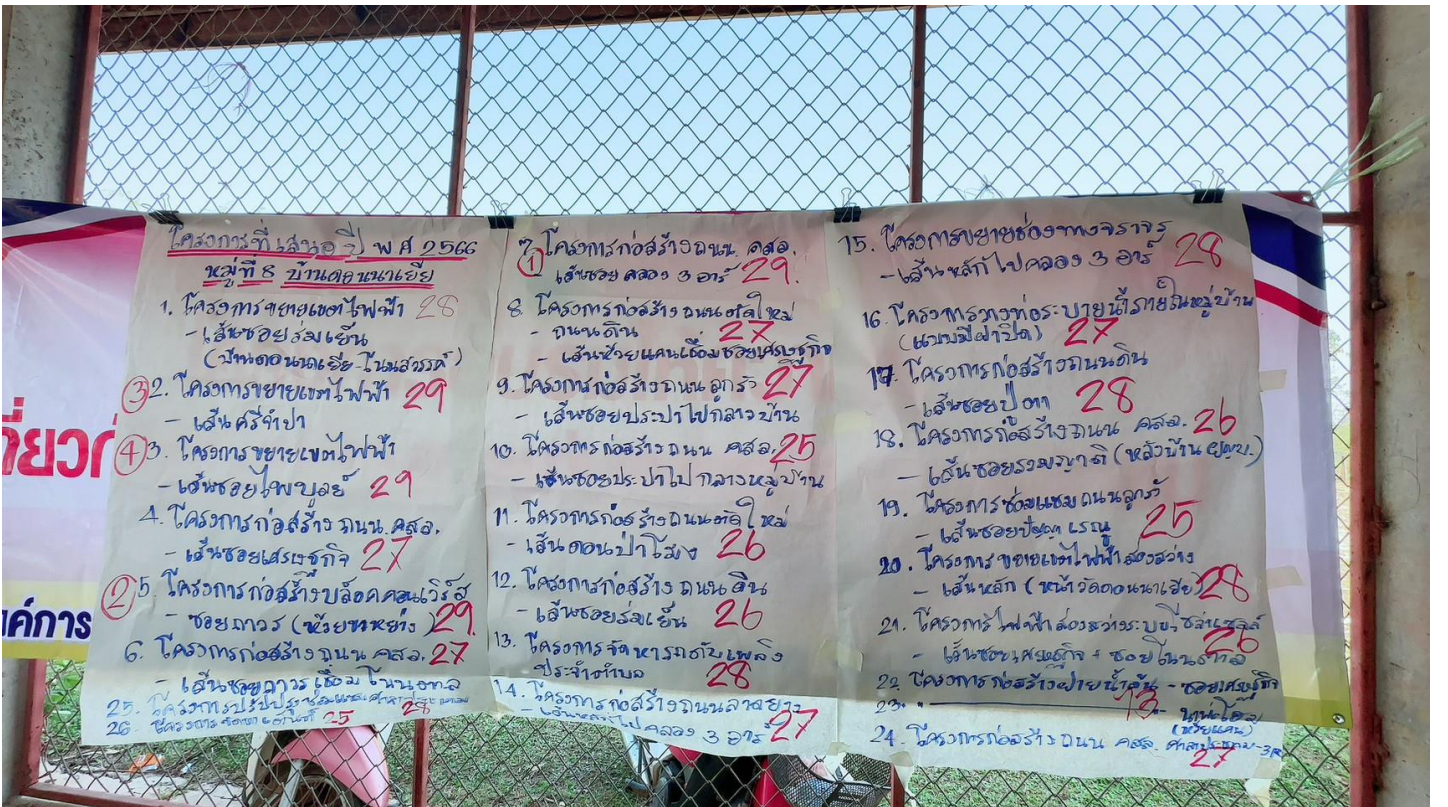 โครงการที่เสนอ ปี พ.ศ. 2566
หมู่ที่ 8 บ้านดอนนาเยีย
1. โครงการขยายเขตไฟฟ้า 28
- เส้นซอยร่มเย็น
(บ้านดอนนาเยีย-โนนสวรรค์)
③ 2. โครงการขยายเขตไฟฟ้า 29
- เส้นศรีจำปา
④ 3. โครงการขยายเขตไฟฟ้า
- เส้นซอยไพบูลย์ 29
4. โครงการก่อสร้างถนน คสล.
- เส้นซอยเศรษฐกิจ 27
② 5. โครงการก่อสร้างบล็อคคอนเวิร์ส
- ซอยถาวร (ห้วยขาหย่าง) 29
6. โครงการก่อสร้างถนน คสล. 27
- เส้นซอยถาวรเชื่อมโนน
25. โครงการปรับปรุง
26. โครงการ 25
7. โครงการก่อสร้างถนน คสล.
① เส้นซอยคลอง 3 อาร์ 29
8. โครงการก่อสร้างถนนตัดใหม่
- ถนนดิน 27
- เส้นห้วยแคนเชื่อมซอยเศรษฐกิจ
9. โครงการก่อสร้างถนนลูกรัง 27
- เส้นซอยประปาไปกลางบ้าน
10. โครงการก่อสร้างถนน คสล. 25
- เส้นซอยประปาไปกลางหมู่บ้าน
11. โครงการก่อสร้างถนนตัดใหม่
- เส้นดอนป่าโมง 26
12. โครงการก่อสร้างถนนดิน
- เส้นซอยร่มเย็น 26
13. โครงการจัดหารถดับเพลิง
ประจำตำบล 28
14. โครงการก่อสร้างถนนลาดยาง
- เส้นหลักไปคลอง 3 อาร์ 27
15. โครงการขยายช่องทางจราจร
- เส้นหลักไปคลอง 3 อาร์ 28
16. โครงการวางท่อระบายน้ำภายในหมู่บ้าน
(แบบมีฝาปิด) 27
17. โครงการก่อสร้างถนนดิน
- เส้นซอยปู่ตา 28
18. โครงการก่อสร้างถนน คสล. 26
- เส้นซอยรวมญาติ (หลังบ้าน ผญบ.)
19. โครงการซ่อมแซมถนนลูกรัง
- เส้นซอย เรณู 25
20. โครงการขยายเขตไฟฟ้าส่องสว่าง
- เส้นหลัก (หน้าวัดดอนนาเยีย) 28
21. โครงการไฟฟ้าส่องสว่างระบบโซล่าเซลล์
- เส้นซอยเศรษฐกิจ + ซอยโนนตาล 26
22. โครงการก่อสร้างฝายน้ำล้น - ซอยเศรษฐกิจ
23. " 13
(ห้วยแคน)
24. โครงการก่อสร้างถนน คสล. ศาลาประชาคม-3R
27